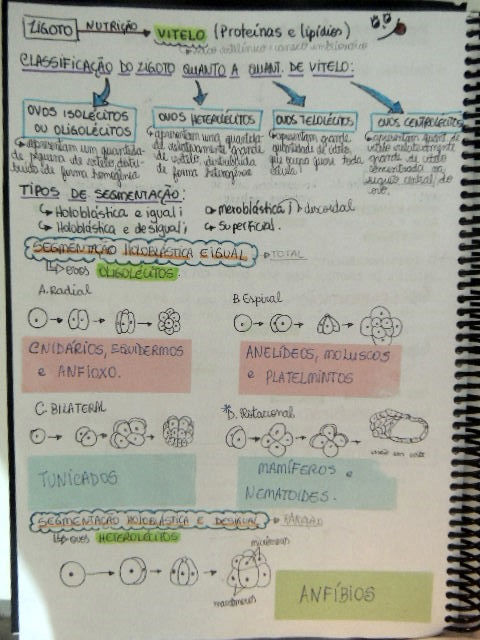 ZIGOTO NUTRIÇÃO VITELO (Proteínas e lipídios)
CLASSIFICAÇÃO DO ZIGOTO QUANTO A QUANT. DE VITELO:
OVOS ISOLÉCITOS
OU OLIGOLÉCITOS
apresentam um quantida-
de pequena de vitelo distri-
buído de forma homogênia
OVOS HETEROLÉCITOS
apresentam uma quantida-
de relativamente grande
de vitelo distribuida
de forma heterogênia
OVOS TELOLÉCITOS
apresentam grande
quantidade de vitelo
que ocupa quase toda
célula
OVOS CENTROLÉCITOS
apresentam quant. de
vitelo relativamente
grande de vitelo
concentrado na
região central do
ovo.
TIPOS DE SEGMENTAÇÃO:
Holoblástica e igual;
Holoblástica e desigual;
meroblástica discoidal
Superficial.
SEGMENTAÇÃO HOLOBLÁSTICA E IGUAL TOTAL
OLIGOLÉCITOS
A. Radial
B. Espiral
CNIDÁRIOS, EQUIDERMOS
e ANFIOXO.
ANELÍDEOS, MOLUSCOS
e PLATELMINTOS
C. BILATERAL
D. Rotacional
TUNICADOS
MAMÍFEROS e
NEMATOIDES.
SEGMENTAÇÃO HOLOBLÁSTICA E DESIGUAL
HETEROLÉCITOS
micrômeros
macrômeros
ANFÍBIOS